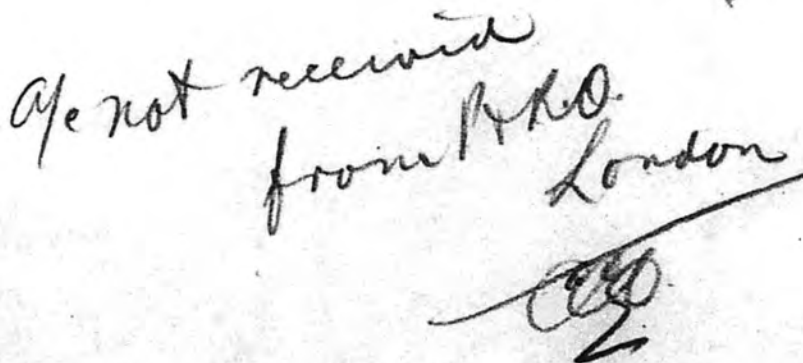 a/c not received
from P&R.O.
London